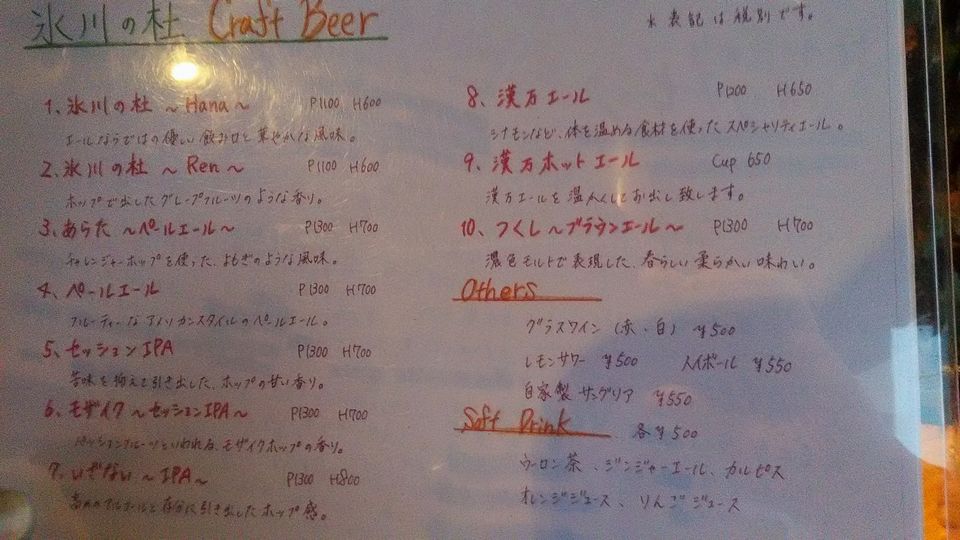 氷川の杜 Craft Beer
※表記は税別です。
1、氷川の杜 ～Hana～ P1100 H600
エールならではの優しい飲み口と華やかな風味。
2、氷川の杜 ～Ren～ P1100 H600
ホップで出したグレープフルーツのような香り。
3、あらた ～ペールエール～ P1300 H700
チャレンジャーホップを使った、よもぎのような風味。
4、ペールエール P1300 H700
フルーティーなアメリカンスタイルのペールエール。
5、セッションIPA P1300 H700
苦味を抑えて引き出した、ホップの甘い香り。
6、モザイク～セッションIPA～ P1300 H700
パッションフルーツといわれる、モザイクホップの香り。
7、いざない ～IPA～ P1300 H800
高めのアルコールと存分に引き出したホップ感。
8、漢方エール P1200 H650
シナモンなど、体を温める食材を使ったスペシャリティエール。
9、漢方ホットエール Cup 650
漢方エールを温かくしてお出し致します。
10、つくし～ブラウンエール～ P1300 H700
濃色モルトで表現した、春らしい柔らかい味わい。
Others
グラスワイン（赤・白）¥500
レモンサワー ¥500 ハイボール ¥550
自家製サングリア ¥550
Soft Drink 各¥500
ウーロン茶、ジンジャーエール、カルピス
オレンジジュース、りんごジュース